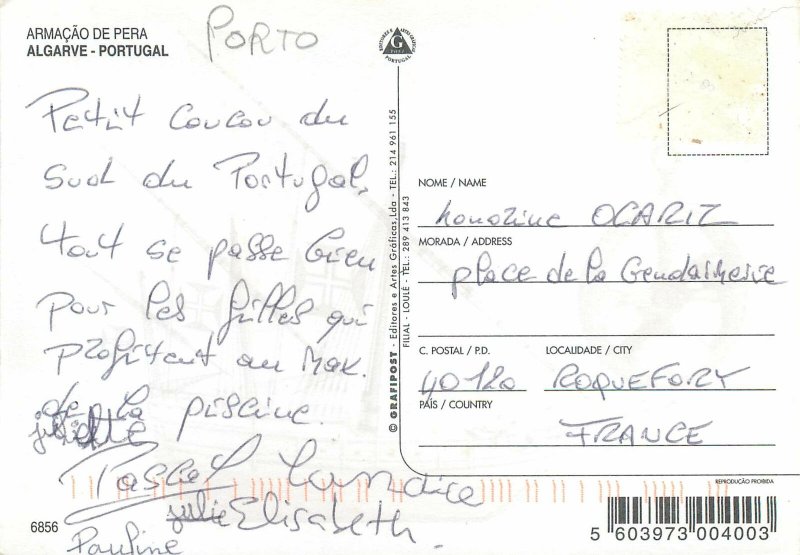 ARMAÇÃO DE PERA
ALGARVE - PORTUGAL
PORTO
Petit coucou du
sud du Portugal,
tout se passe bien
pour les filles qui
profitent au max.
de la piscine.
juliette
Pascal Candice
julie Elisabeth
Pauline
6856
G
PORTUGAL
© GRAFIPOST - Editores e Artes Gráficas,Lda - TEL.: 214 961 155
FILIAL - LOULÉ - TEL.: 289 413 843
NOME / NAME
honorine OCARIZ
MORADA / ADDRESS
place de la Gendarmerie
C. POSTAL / P.D.
LOCALIDADE / CITY
40120
ROQUEFORT
PAÍS / COUNTRY
FRANCE
REPRODUÇÃO PROIBIDA
5 603973 004003